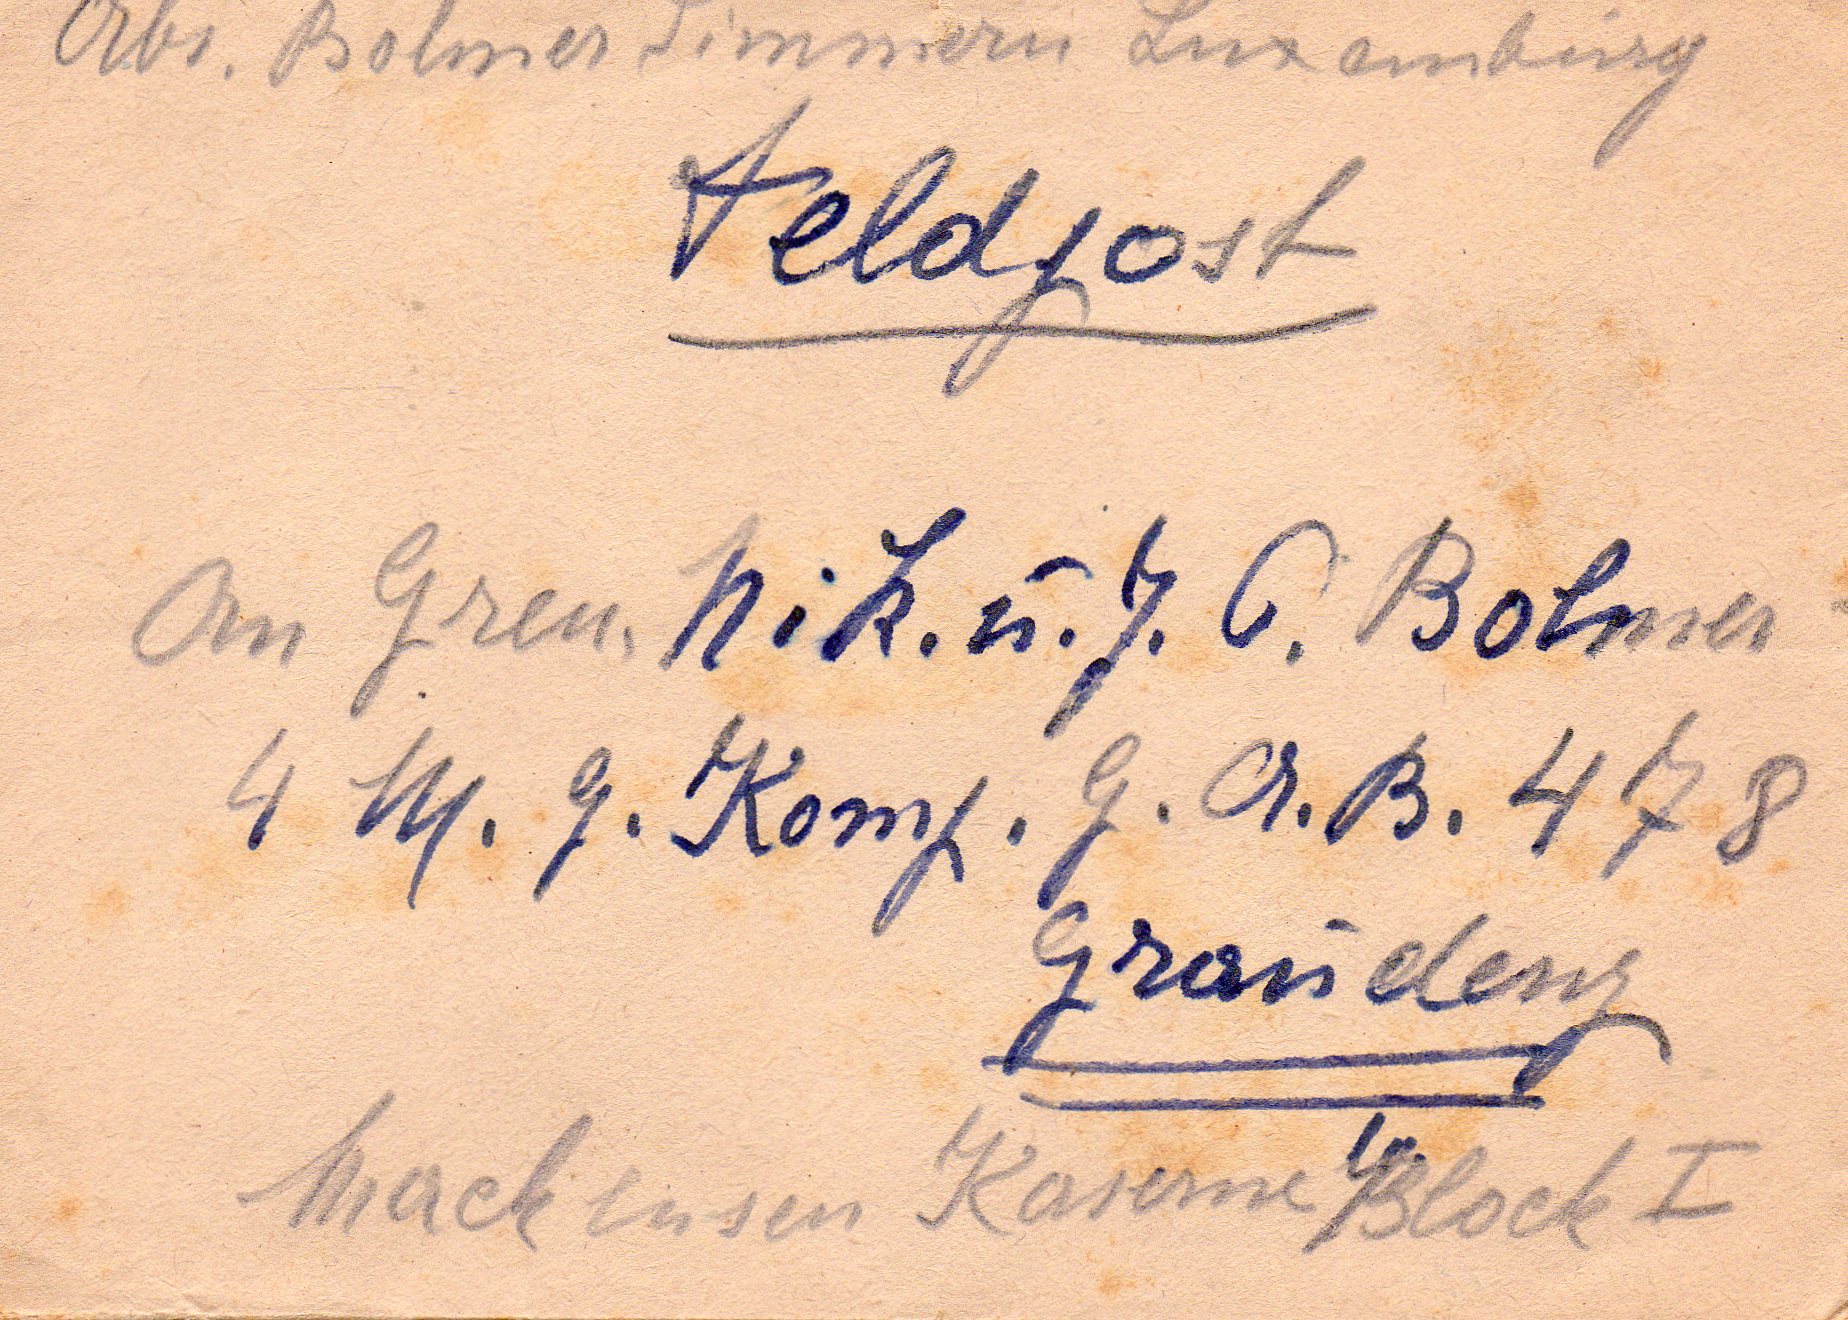 Abs. Bolmer Simmern Luxemburg
Feldpost
An Gren. Nik. u. J. P. Bolmer
4 M. G. Komp. G. A. B. 478
Graudenz
Mackensen Kaserne Block I